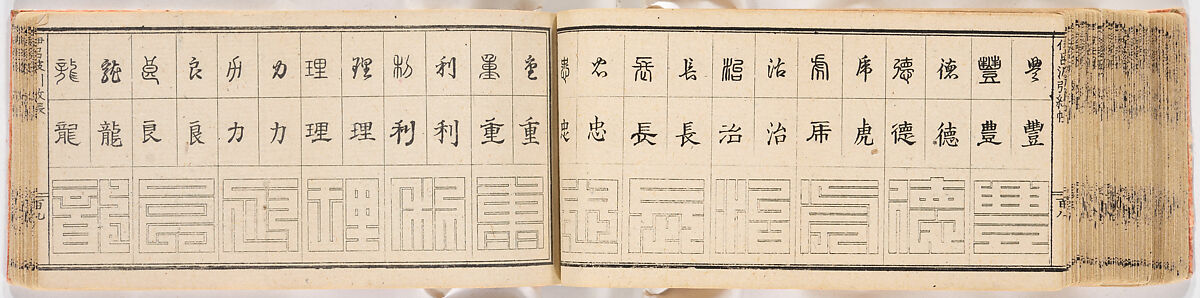 伊呂波引紋帳
豐豐德德虎虎治治長長忠忠
豐豊德德虎乕治治長長忠忠
豐德虎治長忠
重重利利理理力力良良龍龍
重重利利理理力力良良龍龍
重利理力良龍